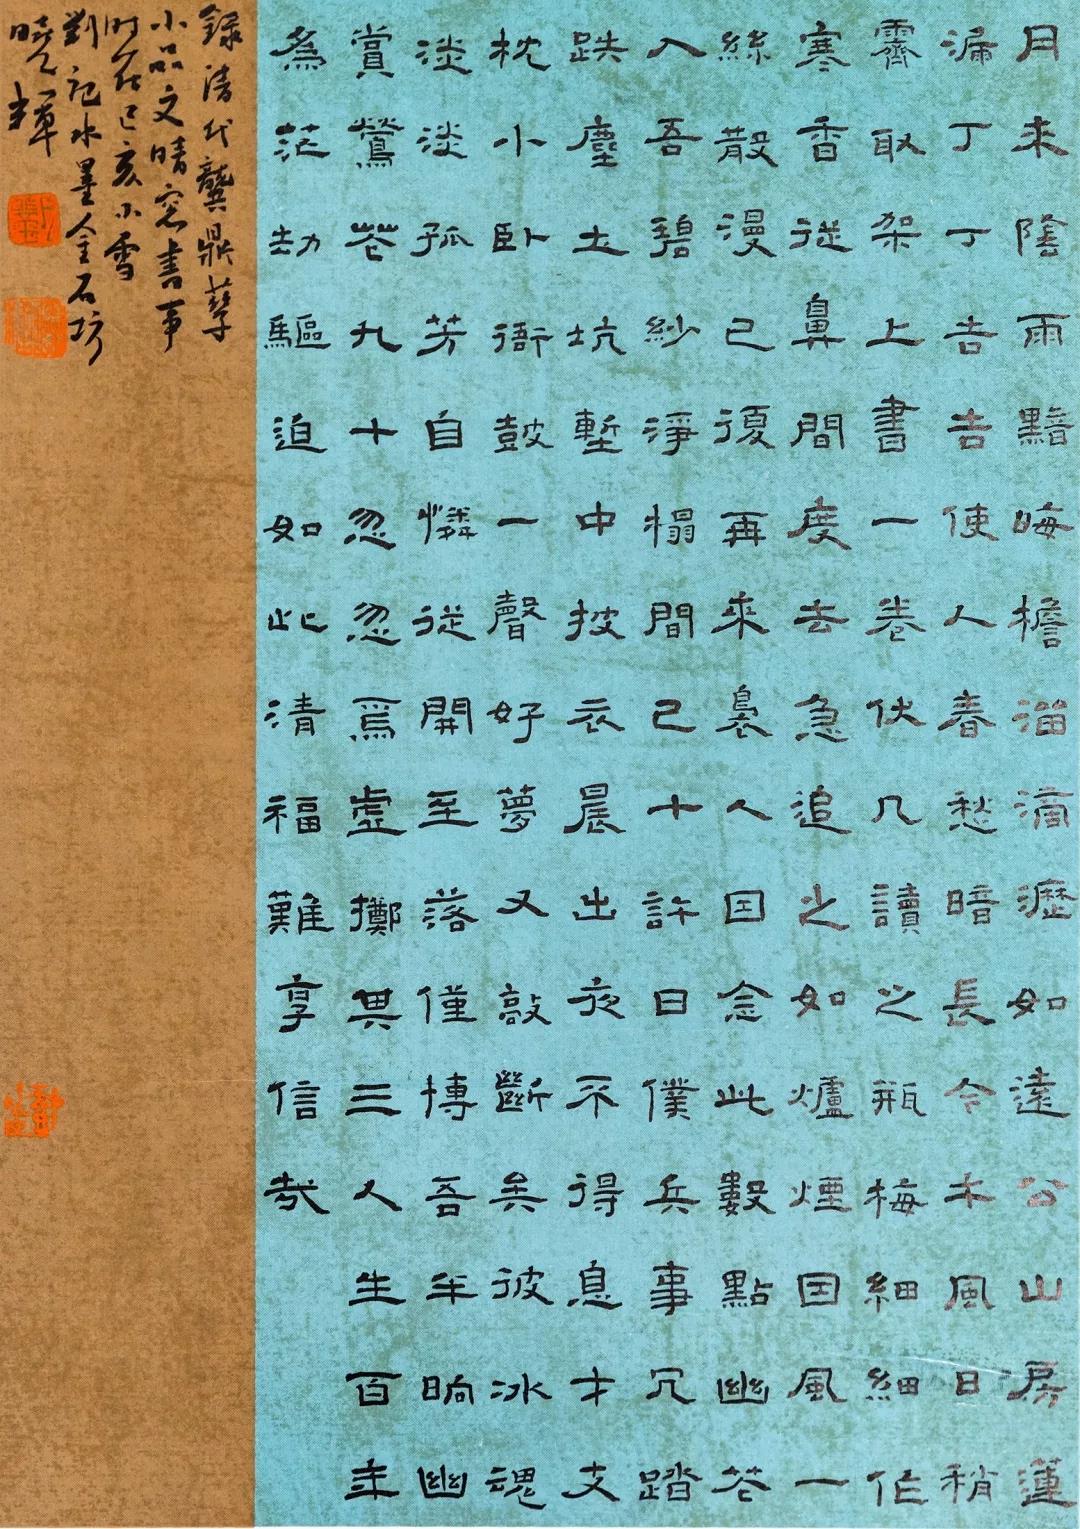 月來陰雨黯晦檐溜滴瀝如遠公山房蓮
漏丁丁告告使人春愁暗長今木風日稍
霽取架上書一卷伏几讀之瓶梅細細作
寒香從鼻間度去急追之如爐煙因風一
絲散漫已復再來裊人因念此數點幽花
入吾碧紗淨榻間已十許日僕兵事冗踏
跌塵土坑塹中披衣晨出夜不得息才支
枕小臥衙鼓一聲好夢又敲斷矣彼冰魂
淡淡孤芳自憐從開至落僅博吾半晌幽
賞鶯花九十忽忽焉虛擲其三人生百年
為茫劫驅迫如此清福難享信哉
錄清代龔鼎孳
小品文晴窓書事
時在己亥小雪
劉記水墨金石坊
曉輝